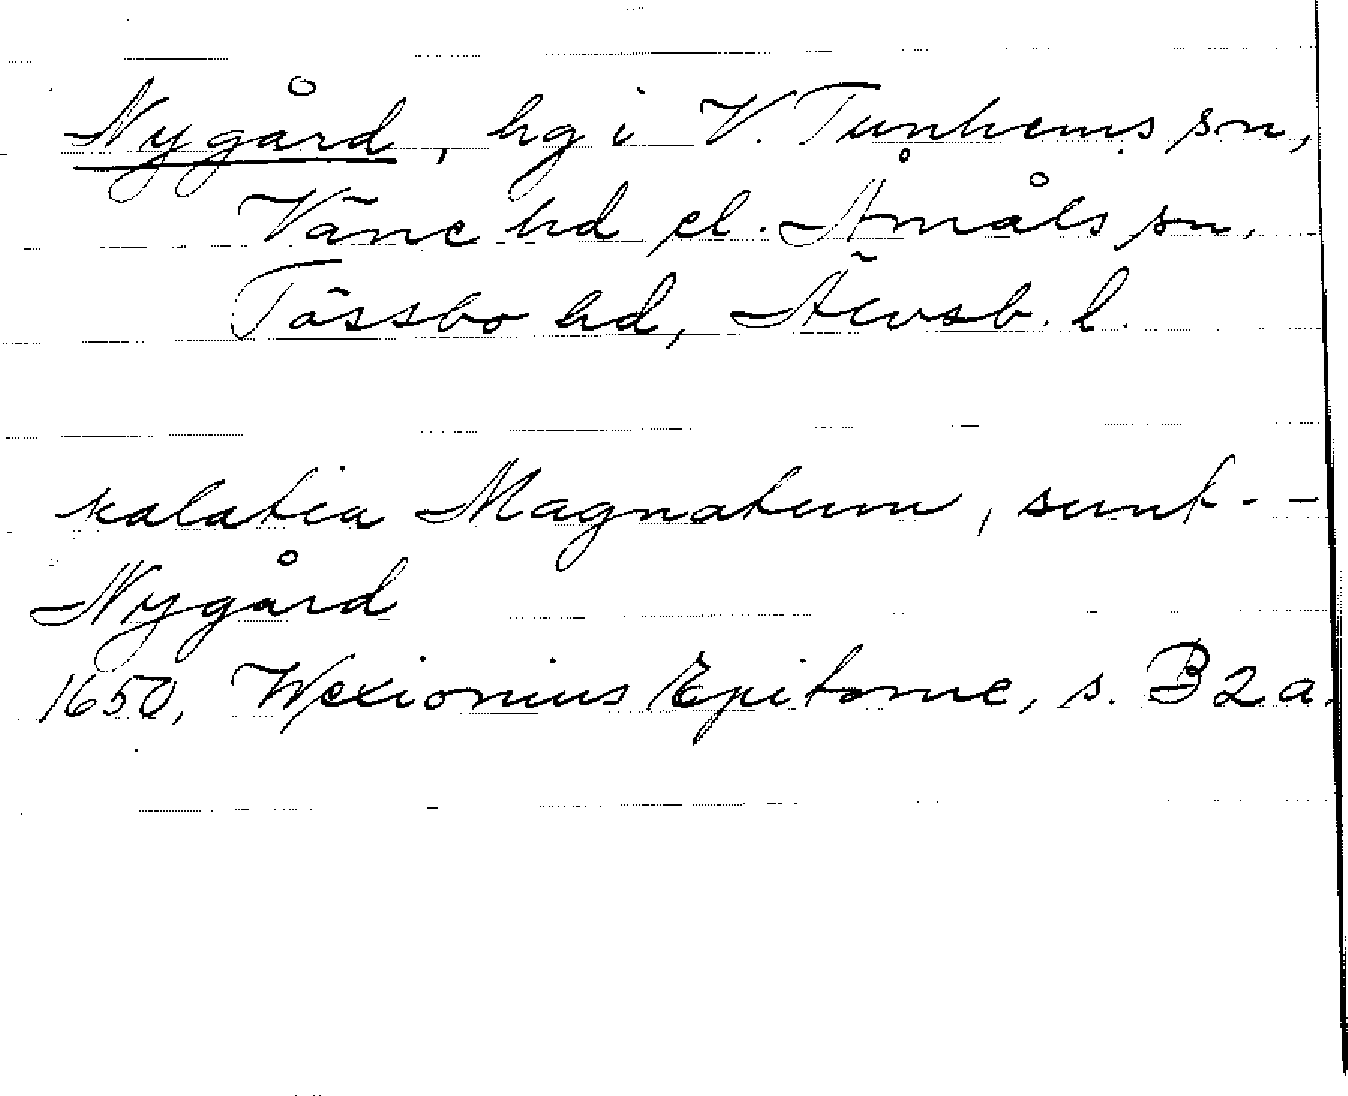 Nygård, hg i V. Tunhems sn,
Väne hd el. Åmåls sn,
Tössbo hd, Älvsb. l.
Palatia Magnatum, sunt - -
Nygård
1650, Wexionius Epitome, s. B2a.